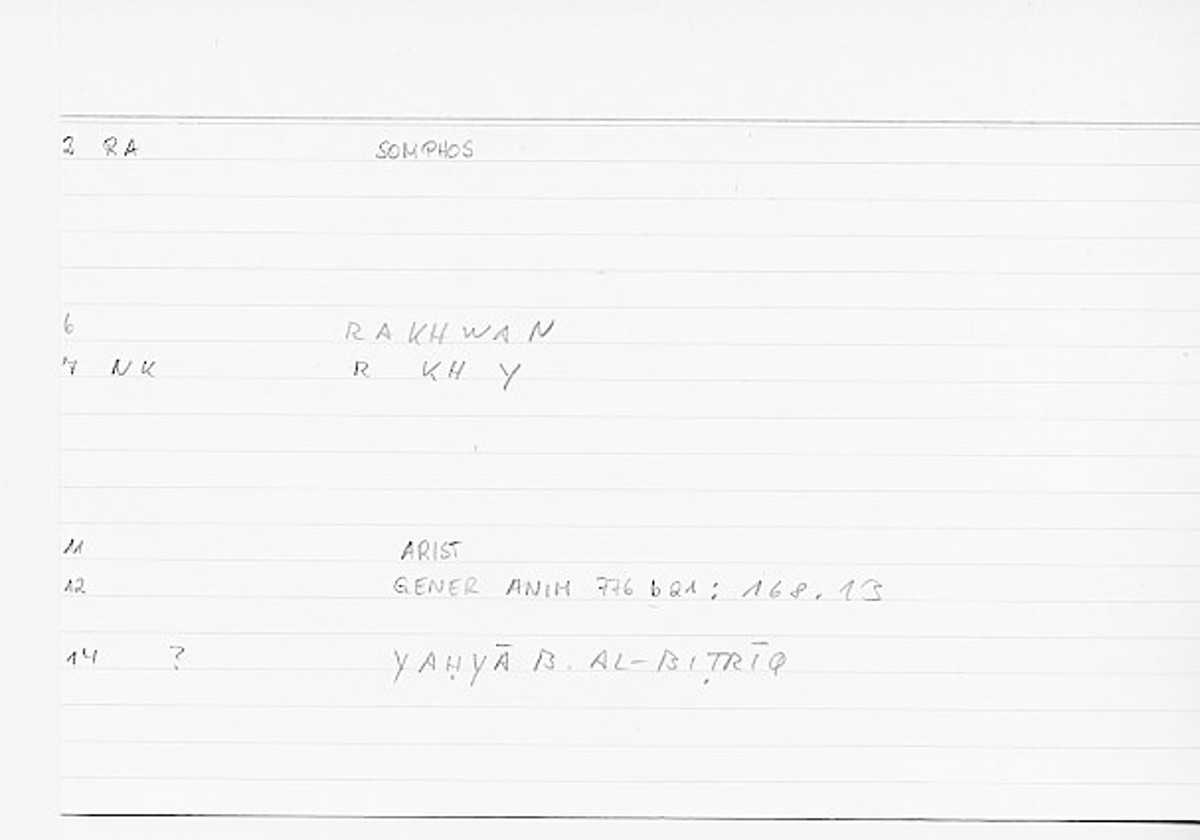 2 RA SOMPHOS
6 RAKHWAN
7 NK R KH Y
11 ARIST
12 GENER ANIM 776 b 21 : 168.13
14 ? YAḤYĀ B. AL-BIṬRĪQ